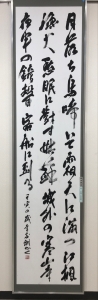 月落ち烏啼いて霜天に満つ江楓
漁火愁眠に對す姑蘇城外の寒山寺
夜半の鐘聲客船に到る